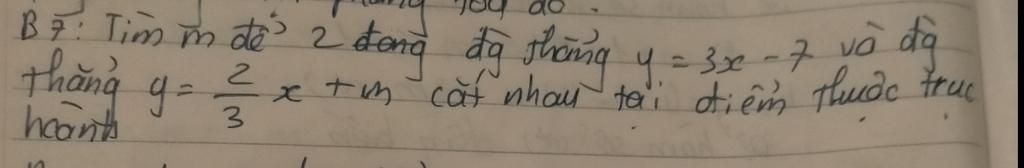 B7: Tìm m để 2 đong đg thẳng y = 3x - 7 và đg
thẳng y = 2/3 x + m cắt nhau tại điểm thuộc trục
hoành